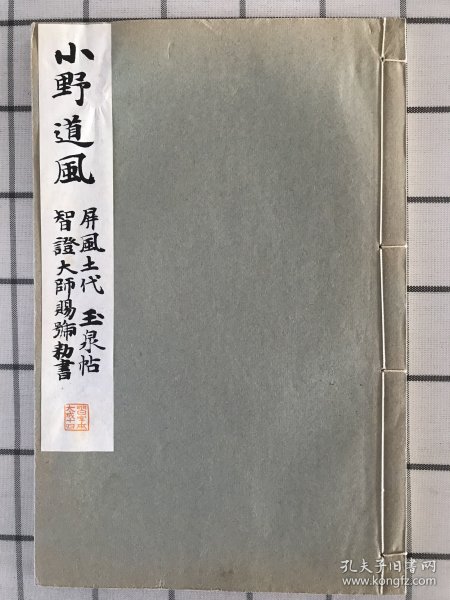 小野道風
屏風土代 玉泉帖
智證大師賜號勅書
孔夫子旧书网
www.kongfz.com